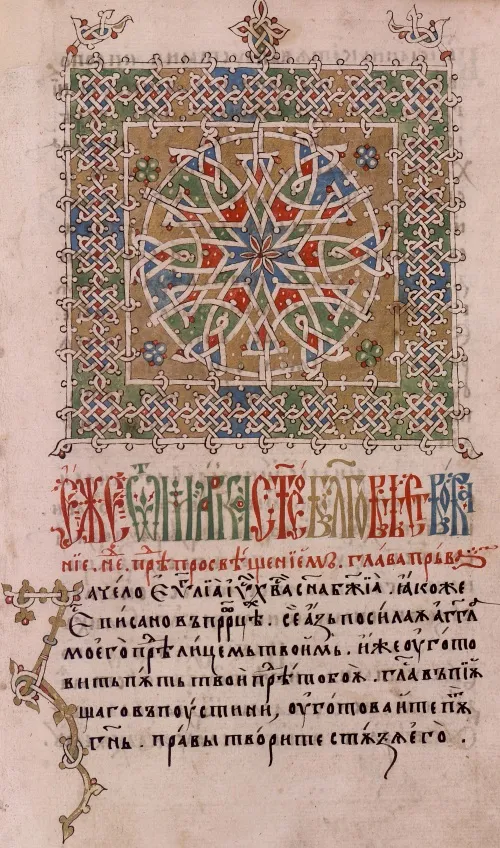 еже ѿ марка ст҃ое бл҃говѣствова
ніе. нⷣе. прѣⷣ просвѣщеніемъ. глава прьваꙗ
Начело еѵⷢ҇лїа і҃ѵ х҃ва сн҃а бж҃їа. ꙗкоже
е писано въ прⷪ҇рцѣ. се азь посилаѫ агг҃ла
моего прѣⷣ лицемь твоимь. иже оугото
вить пѫть твой прѣⷣ тобоѫ. гла҃ въпїѫ
щаго въ поустини, оуготовайте пѫⷮ
г҃нь. правы творите стьзѫ его.